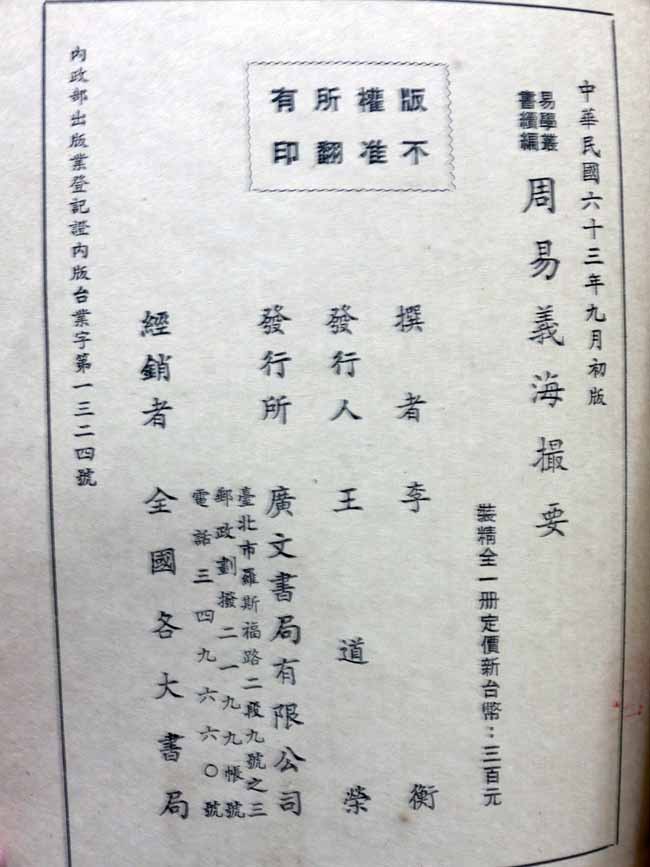 中華民國六十三年九月初版
易學叢
書續編
周易義海撮要
裝精全一册定價新台幣：三百元
版權所有
不准翻印
撰者 李衡
發行人 王道榮
發行所 廣文書局有限公司
臺北市羅斯福路二段九號之三
郵政劃撥二一九九帳號
電話三四九六六〇號
經銷者 全國各大書局
內政部出版業登記證內版台業字第一三二四號